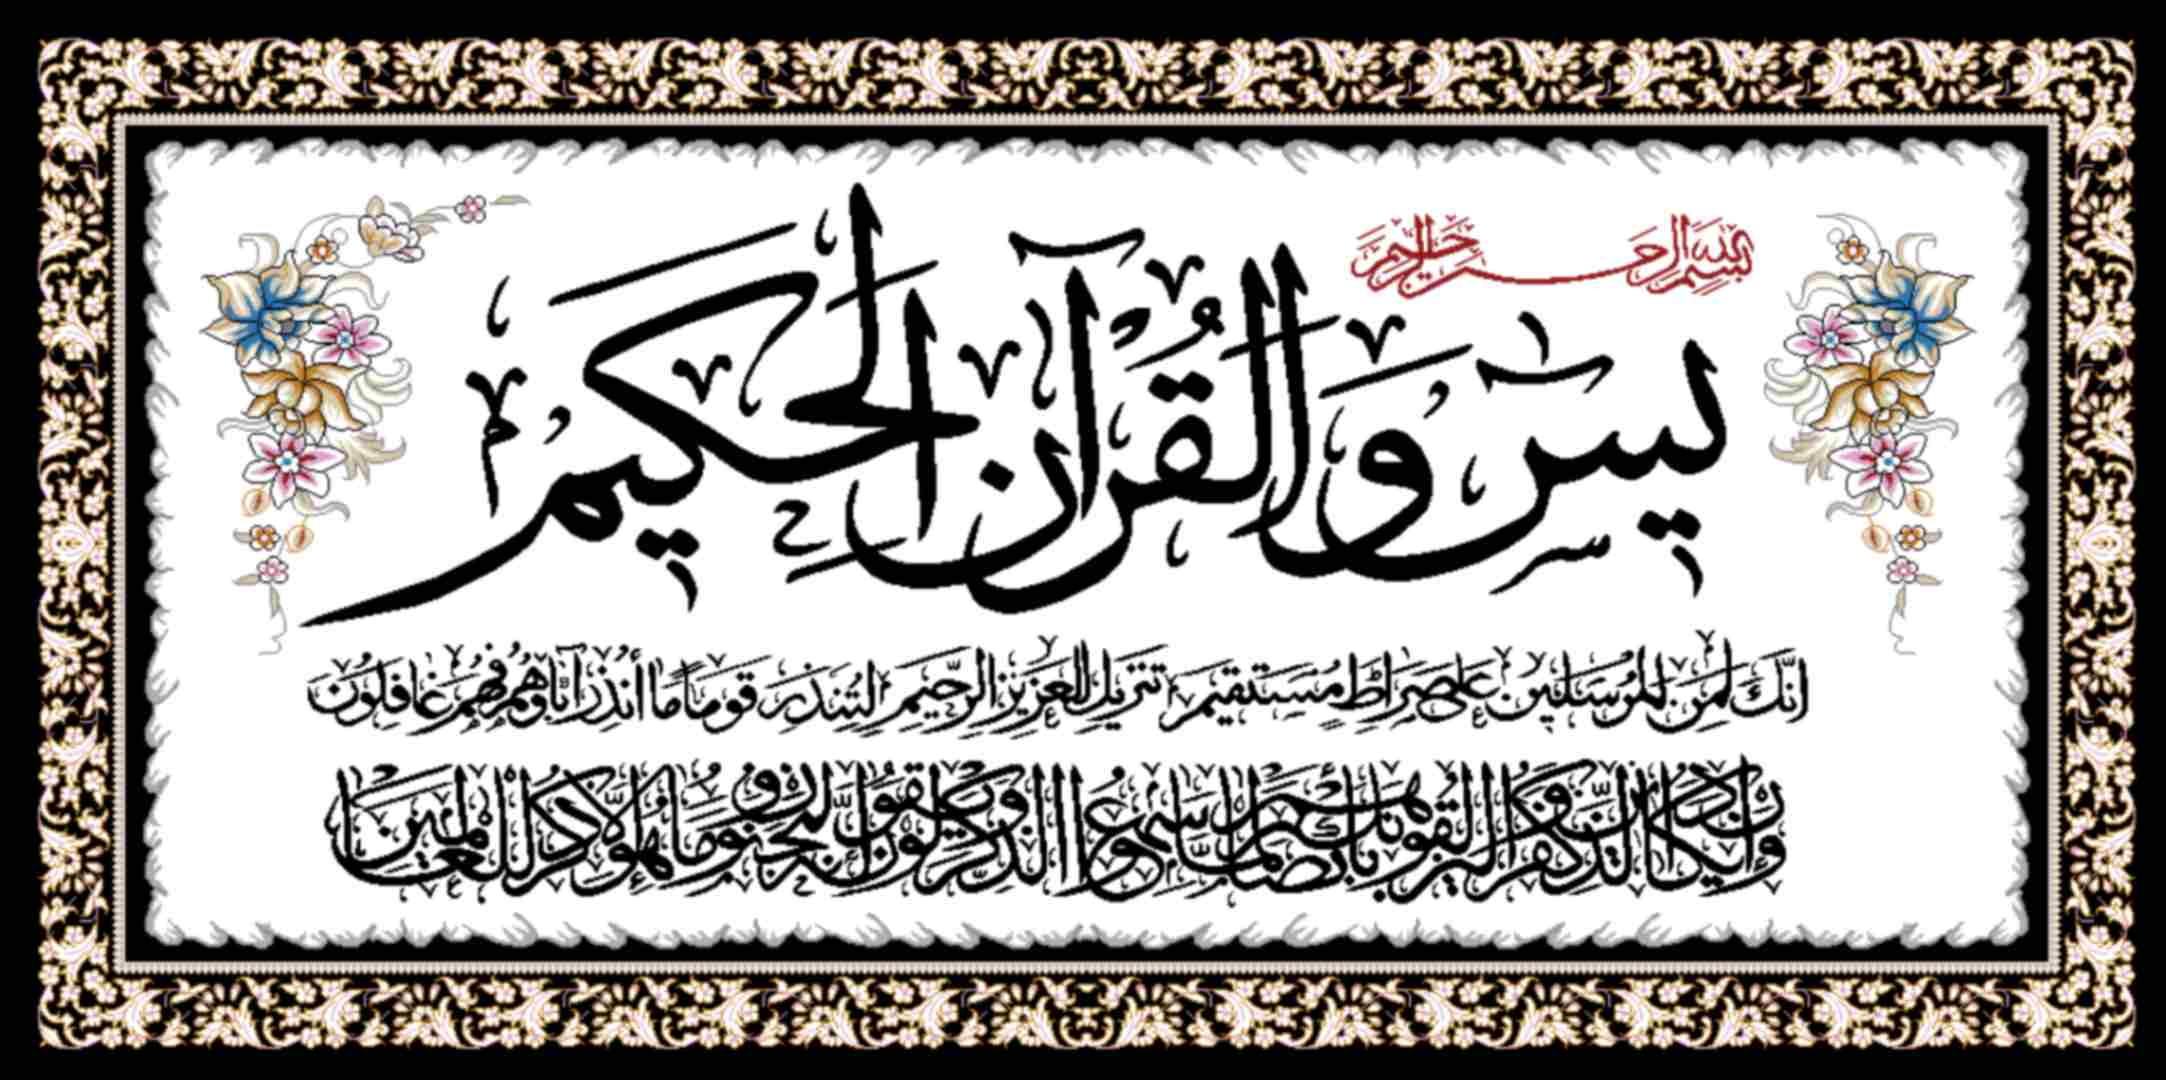 بسم الله الرحمن الرحيم
يس وَالْقُرْآنِ الْحَكِيمِ
إنَّكَ لَمِنَ الْمُرْسَلِينَ عَلَى صِرَاطٍ مُسْتَقِيمٍ تَنْزِيلَ الْعَزِيزِ الرَّحِيمِ لِتُنْذِرَ قَوْمًا مَا أُنْذِرَ آبَاؤُهُمْ فَهُمْ غَافِلُونَ
وَإِنْ يَكَادُ الَّذِينَ كَفَرُوا لَيُزْلِقُونَكَ بِأَبْصَارِهِمْ لَمَّا سَمِعُوا الذِّكْرَ وَيَقُولُونَ إِنَّهُ لَمَجْنُونٌ وَمَا هُوَ إِلَّا ذِكْرٌ لِلْعَالَمِينَ